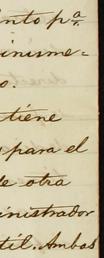 ento pª.
inisme-
o.
tiene
para el
de otra
ministrador
til. Ambas